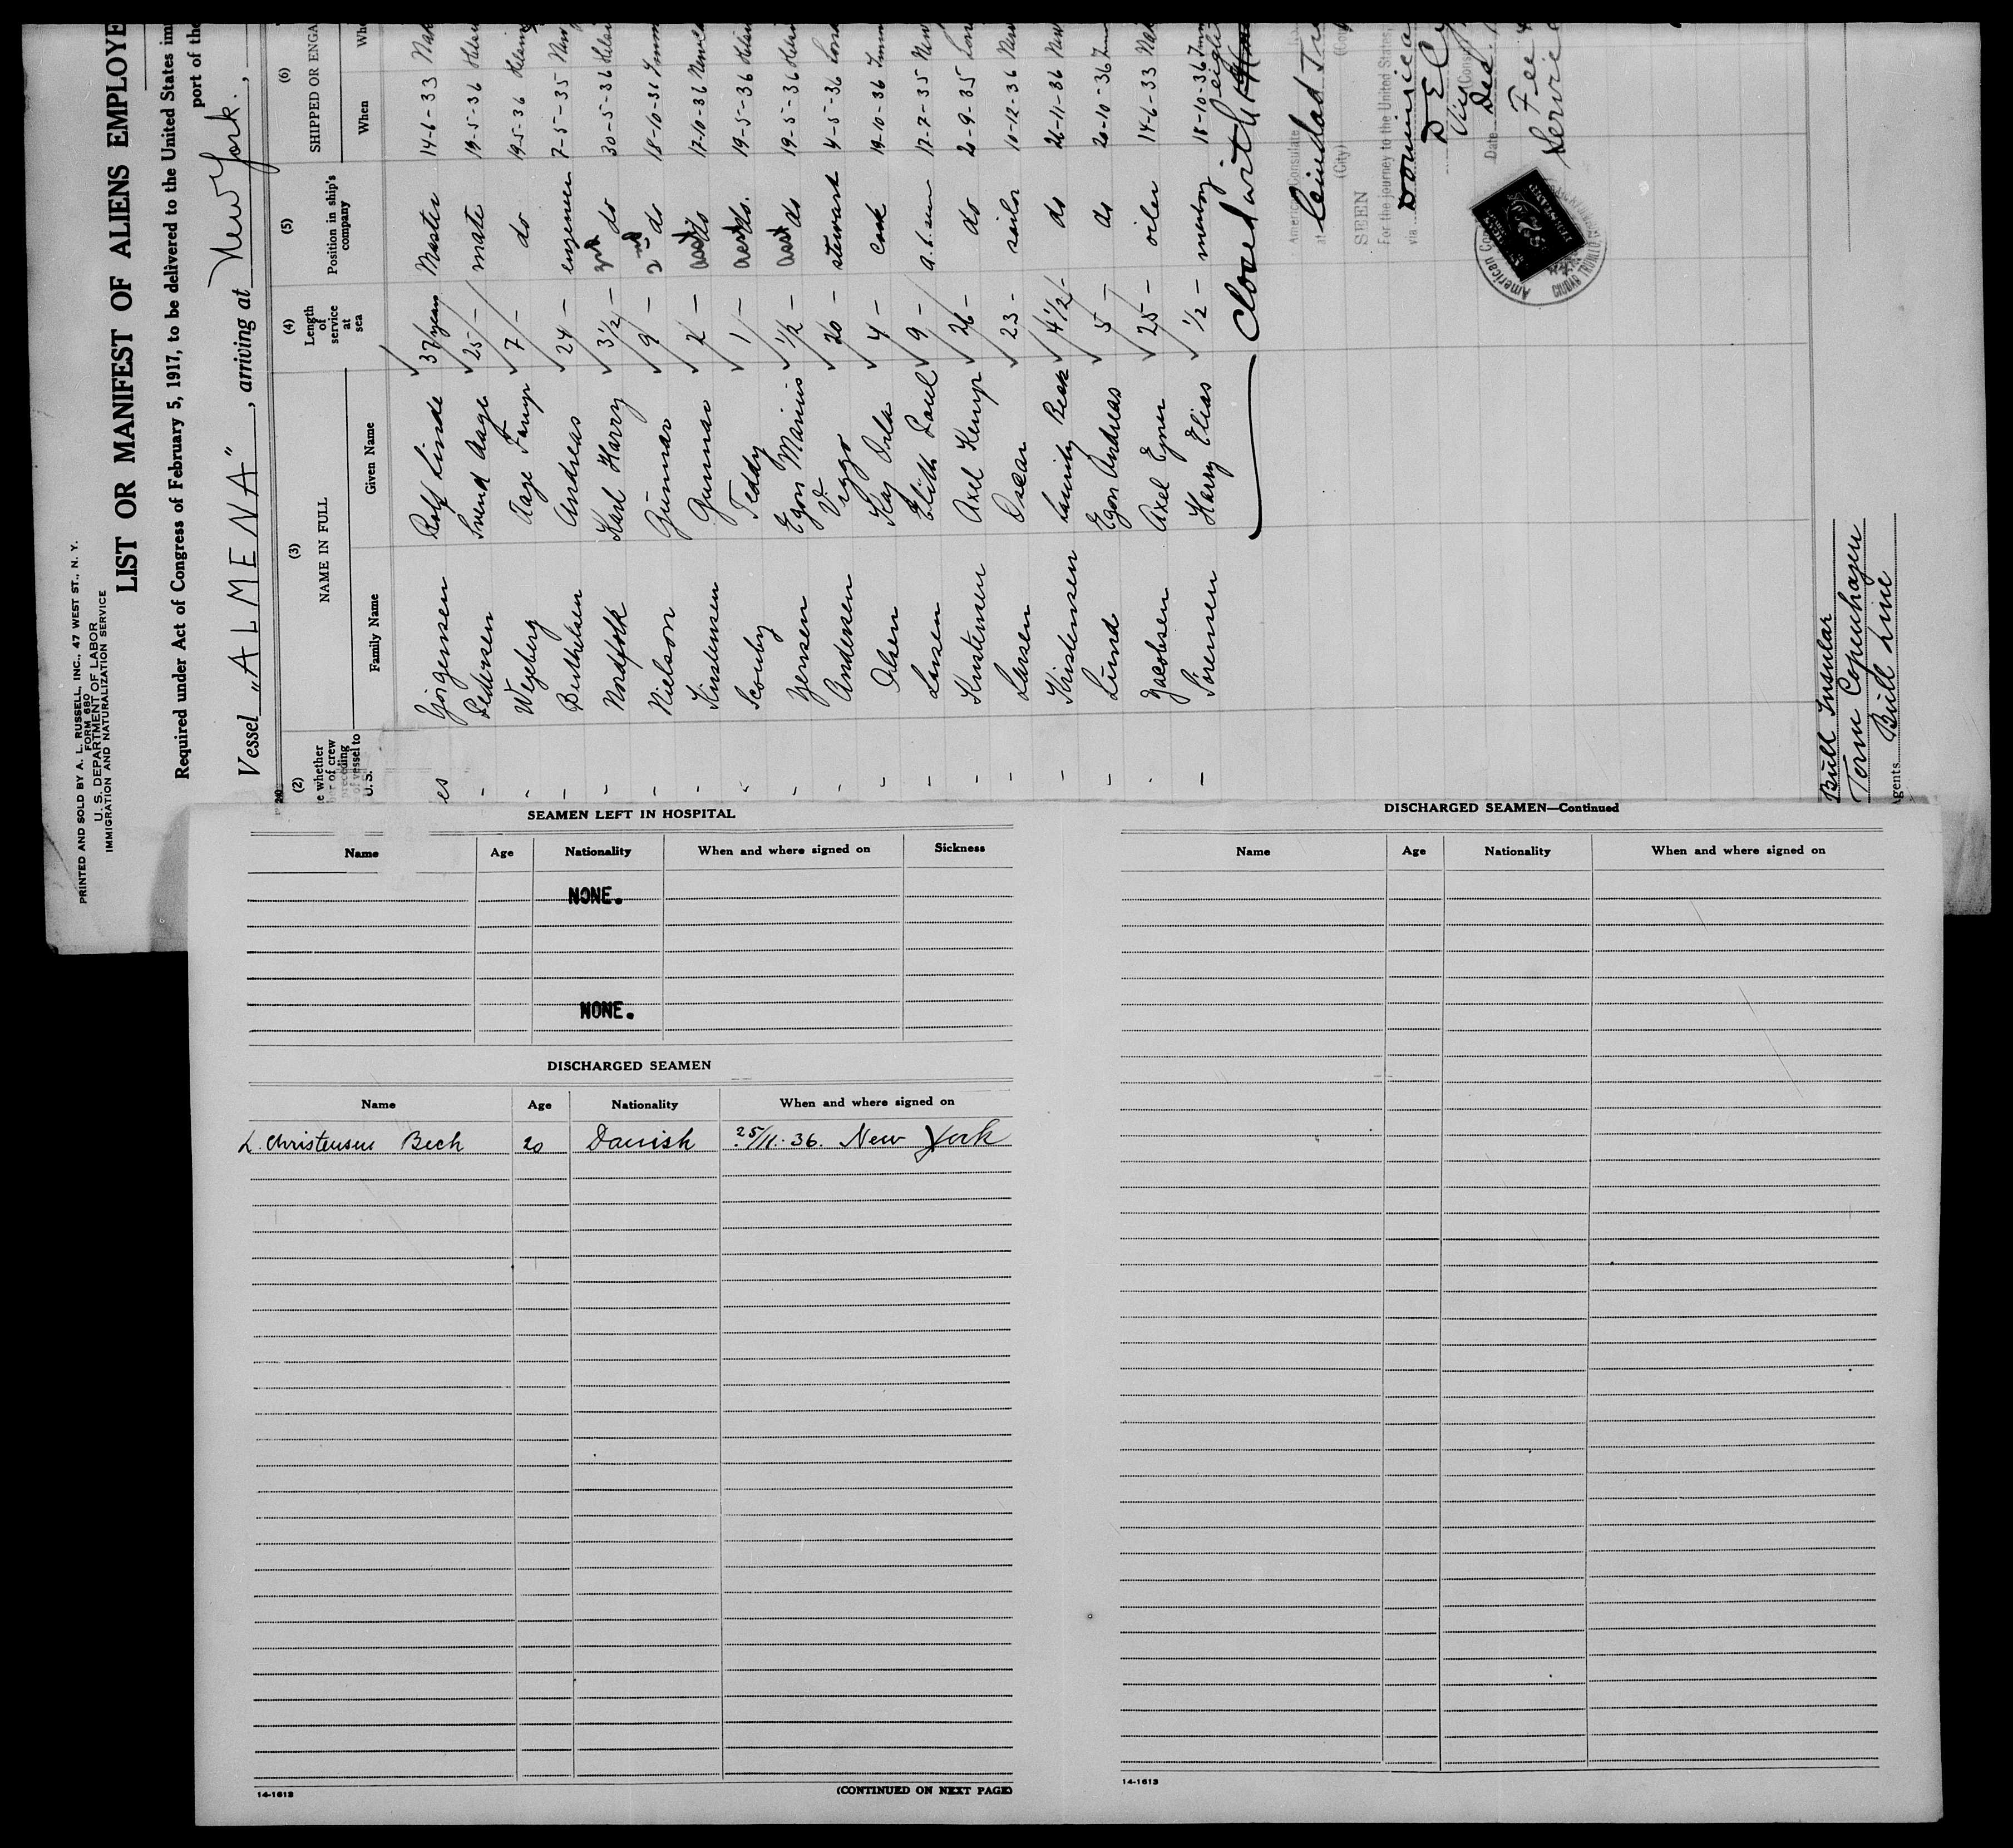 PRINTED AND SOLD BY A. L. RUSSELL, INC., 47 WEST ST., N. Y.
FORM 680
U. S. DEPARTMENT OF LABOR
IMMIGRATION AND NATURALIZATION SERVICE
LIST OR MANIFEST OF ALIENS EMPLOYE
Required under Act of Congress of February 5, 1917, to be delivered to the United States im
port of the
Vessel „ALMENA”, arriving at New York.,
(2) (3) (4) (5) (6)
e whether
of crew
preceding
of vessel to
U. S.
NAME IN FULL
Family Name Given Name
Length of service at sea
Position in ship's company
SHIPPED OR ENGA
When Whe
es Jörgensen Rolf Linde 37 years Master 14-6-33
- Pedersen Svend Aage 25 - mate 19-5-36
- Wegeberg Aage 7 - do 19-5-36
- Berthelsen Andreas 24 - engeneer 7-5-35 New
- Nordfolk Karl Harry 3½ - 3rd do 30-5-36
- Nielson Gunnar 9 - 2nd do 18-10-36 Imm
- Kristensen Gunnar 2 - asst do 17-10-36
- Scouby Teddy 1 - asst do. 19-5-36
- Jensen Egon Marius ½ - asst do 19-5-36
- Andersen V. Viggo 20 - steward 4-5-36
- Olsen Kaj Orla 4 - cook 19-10-36 Imm
- Larsen Poul 9 - a. b. seam 17-7-35 New
- Kristensen Axel Kemp 26 - do 20-9-35
- Larsen Oscar 23 - sailor 10-12-36 New
- Kristensen Lauritz Beck 4½ - do 26-11-36 New
- Lund Egon Andreas 5 - do 20-10-36 Imm
- Jacobsen Axel Ejner 25 - oiler 14-6-33
- Sörensen Harry Elias ½ - messboy 18-10-36 Imm
Closed with eigh
American Consulate
at Ciudad Tru
(City)
SEEN
For the journey to the United States,
via Dominica
Vice Consul
Date Dec.
Fee
Service
American Con
CIUDAD TRUJILLO
Bull Insular
Torm Copenhagen
Agents Bull Line
SEAMEN LEFT IN HOSPITAL
Name Age Nationality When and where signed on Sickness
NONE.
NONE.
DISCHARGED SEAMEN
Name Age Nationality When and where signed on
L. Christensen Bech 20 Danish 25/11.-36. New York
14-1613
(CONTINUED ON NEXT PAGE)
DISCHARGED SEAMEN—Continued
Name Age Nationality When and where signed on
14-1613